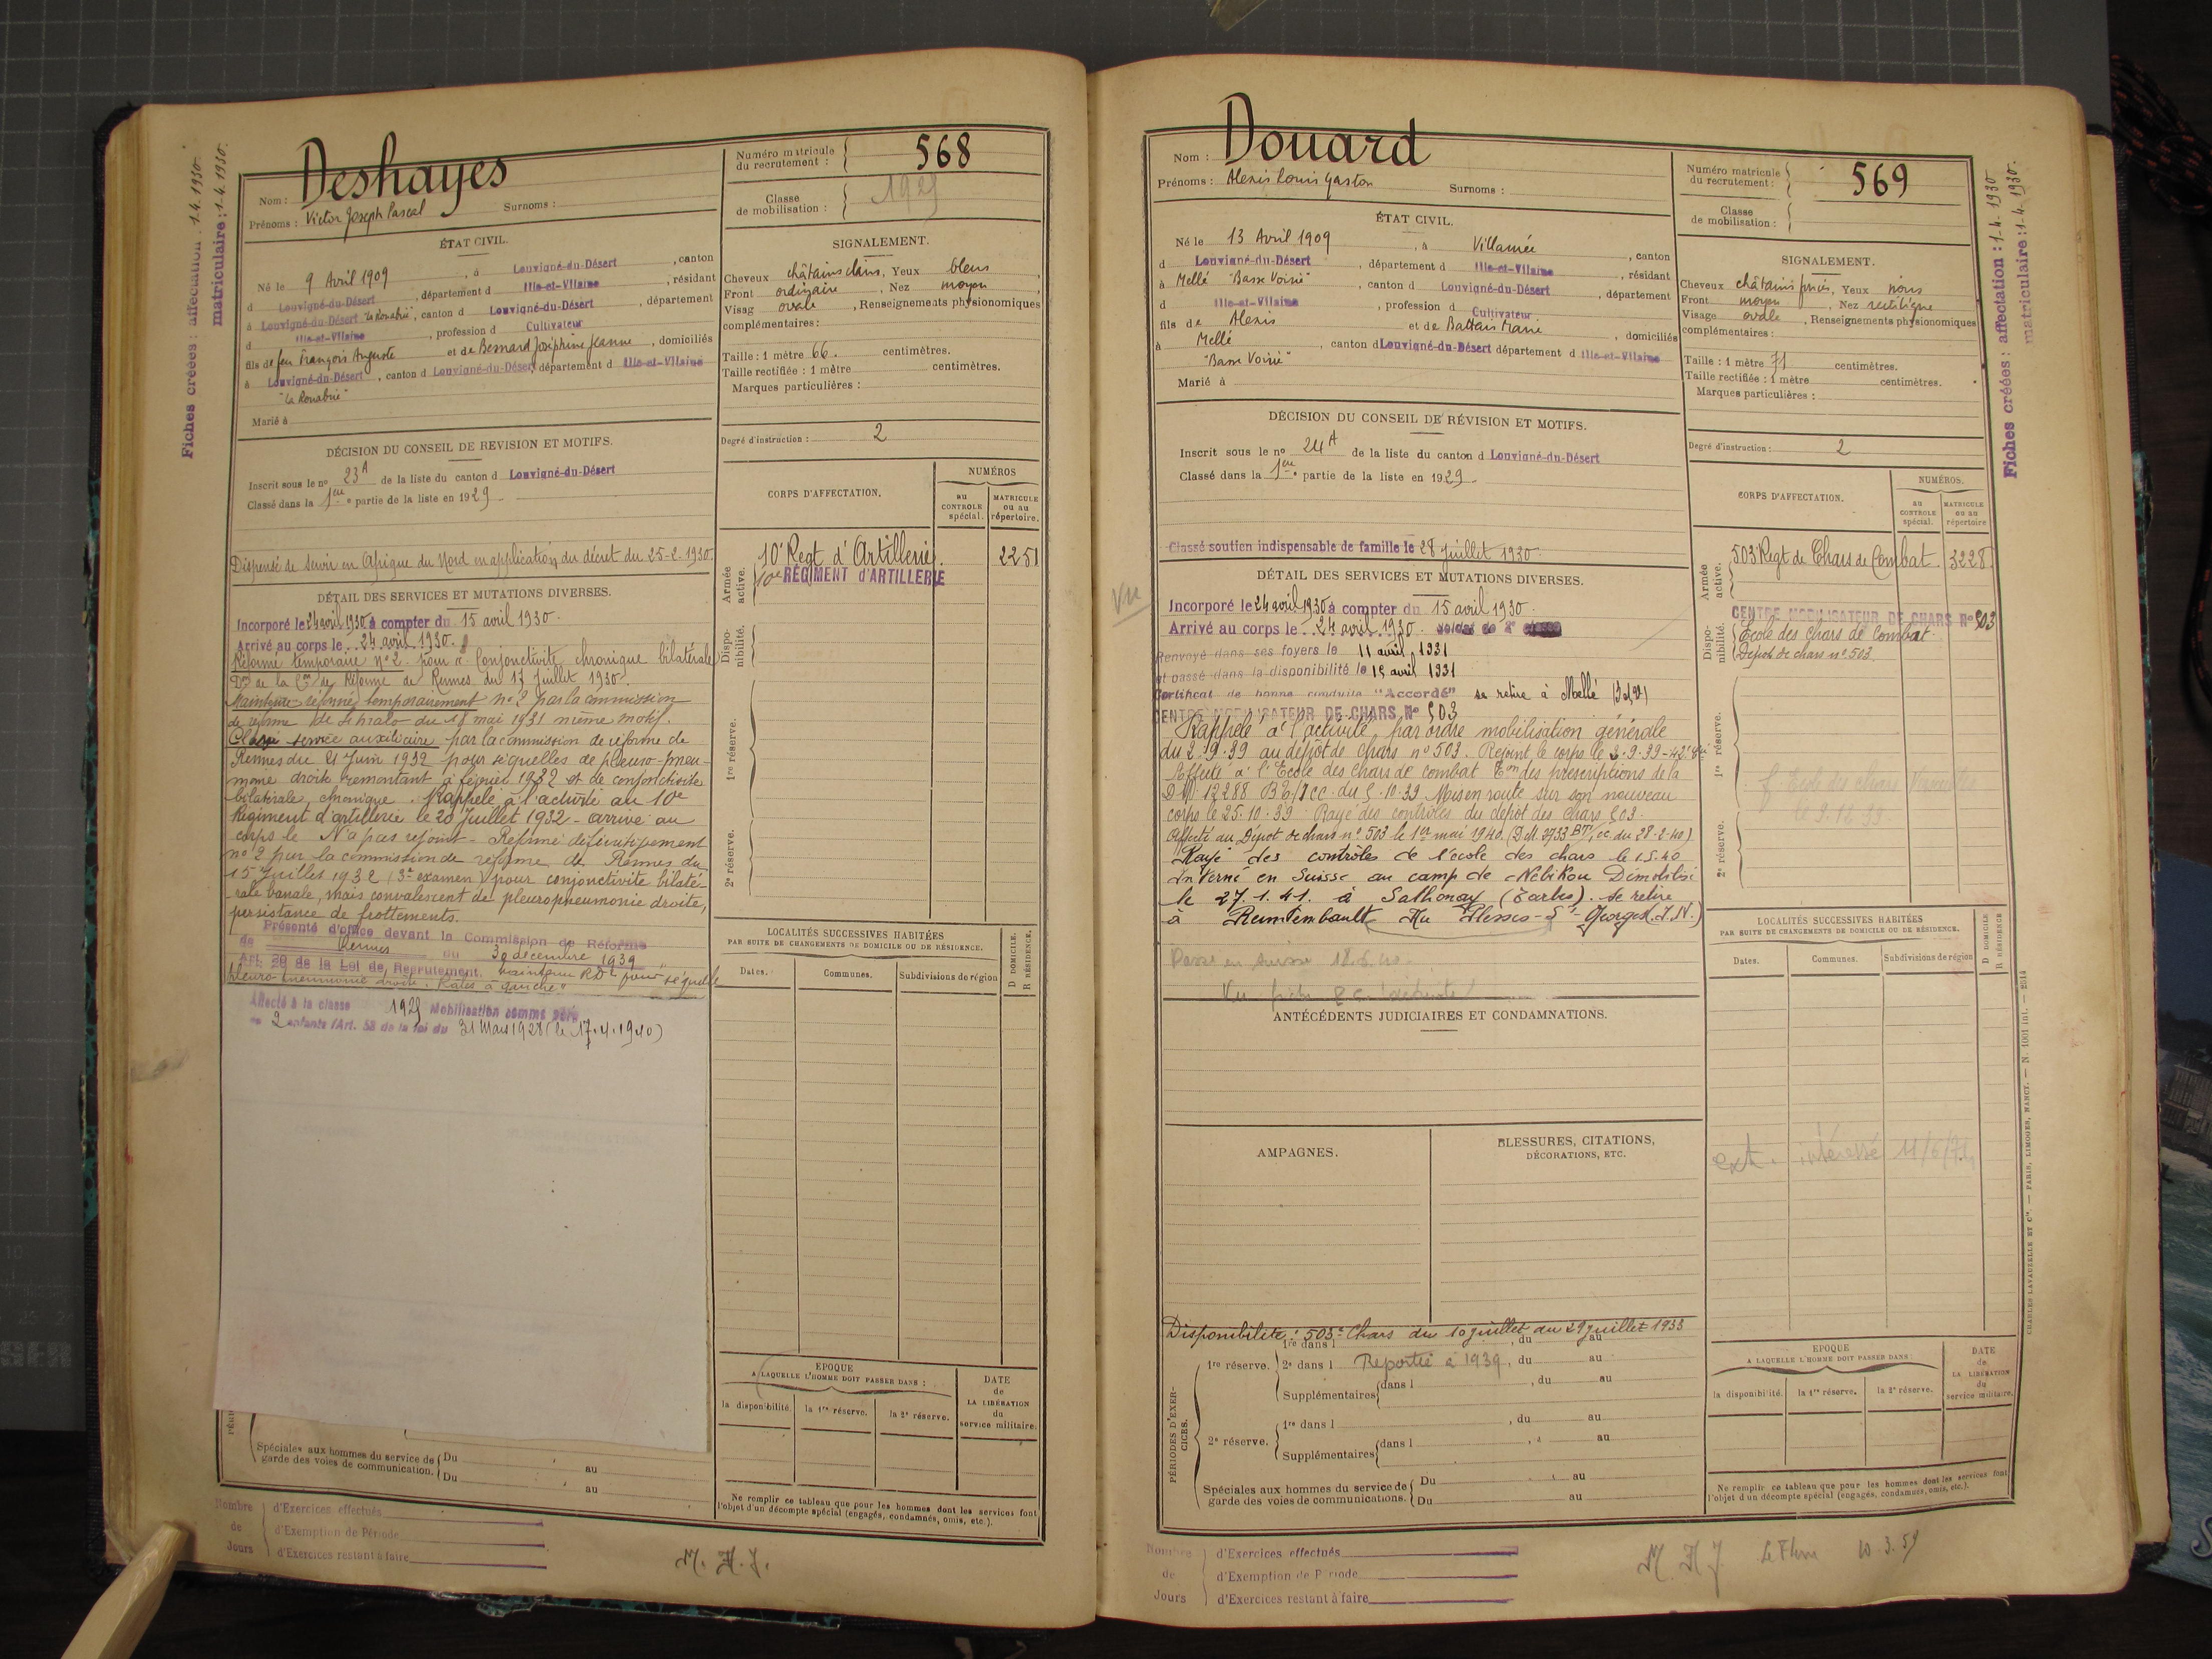 Fiches créées : affectation : 1.4.1930
matriculaire : 1.4.1930.
Nom : Deshayes
Prénoms : Victor Joseph Pascal Surnoms :
Numéro matricule du recrutement : 568
Classe de mobilisation : 1925
ÉTAT CIVIL.
Né le 9 Avril 1909, à Louvigné-du-Désert, canton
d Louvigné-du-Désert, département d Ille-et-Vilaine, résidant
à Louvigné-du-Désert "La Ronabrie", canton d Louvigné-du-Désert, département
d Ille-et-Vilaine, profession d Cultivateur
fils de feu François Auguste et de Bernard Joséphine Jeanne, domiciliés
à Louvigné-du-Désert, canton d Louvigné-du-Désert département d Ille-et-Vilaine
"La Ronabrie"
Marié à
SIGNALEMENT.
Cheveux châtains clairs, Yeux bleus
Front ordinaire, Nez moyen
Visag ovale, Renseignements physionomiques
complémentaires :
Taille : 1 mètre 66. centimètres.
Taille rectifiée : 1 mètre centimètres.
Marques particulières :
Degré d'instruction : 2
DÉCISION DU CONSEIL DE REVISION ET MOTIFS.
Inscrit sous le no 23A de la liste du canton d Louvigné-du-Désert
Classé dans la 1ère partie de la liste en 1929.
Dispensé de servir en Afrique du Nord en application du décret du 25-2-1930.
CORPS D'AFFECTATION.
NUMÉROS
au CONTROLE spécial.
MATRICULE ou au répertoire.
Armée active.
10e Regt d'Artillerie. 2251
10e RÉGIMENT d'ARTILLERIE
Disponibilité.
1re réserve.
2e réserve.
DÉTAIL DES SERVICES ET MUTATIONS DIVERSES.
Incorporé le 24 avril 1930 à compter du 15 avril 1930.
Arrivé au corps le 24 avril 1930.
Réforme temporaire no 2 pour " Conjonctivite chronique bilatérale
Don de la Con de Réforme de Rennes du 17 Juillet 1930.
Maintenu réformé temporairement no 2 par la commission
de réforme de St Malo du 18 mai 1931 même motif.
Classé service auxiliaire par la commission de réforme de
Rennes du 21 Juin 1932 pour séquelles de pleuro-pneu-
monie droite remontant à février 1932 et de conjonctivite
bilatérale chronique. Rappelé à l'activité au 10e
Régiment d'artillerie le 20 Juillet 1932 - arrivé au
corps le N'a pas rejoint - Réformé définitivement
no 2 par la commission de réforme de Rennes du
15 Juillet 1932 (3e examen) pour conjonctivite bilaté-
rale banale, mais convalescent de pleuropneumonie droite,
persistance de frottements.
Présenté d'office devant la Commission de Réforme
de Rennes du 30 décembre 1939
Art. 20 de la Loi de Recrutement. maintenu RD2 pour séquelle
pleuro pneumonie droite. Râles à gauche"
Affecté à la classe 1925 Mobilisation comme père
de 2 enfants (Art. 58 de la loi du 31 Mars 1928 (le 17.4.1940)
LOCALITÉS SUCCESSIVES HABITÉES
PAR SUITE DE CHANGEMENTS DE DOMICILE OU DE RÉSIDENCE.
Dates. Communes. Subdivisions de région D DOMICILE. R RÉSIDENCE.
EPOQUE
A LAQUELLE L'HOMME DOIT PASSER DANS :
DATE de LA LIBÉRATION du service militaire.
la disponibilité. la 1re réserve. la 2e réserve.
Spéciales aux hommes du service de garde des voies de communication.
Du au
Du au
Ne remplir ce tableau que pour les hommes dont les services font
l'objet d'un décompte spécial (engagés, condamnés, omis, etc.).
Nombre de Jours
d'Exercices effectués
d'Exemption de Période
d'Exercices restant à faire
M. A. J.
Nom : Douard
Prénoms : Alexis Louis Gaston Surnoms :
Numéro matricule du recrutement : 569
Classe de mobilisation :
Fiches créées : affectation : 1-4-1930
matriculaire : 1-4-1930.
ÉTAT CIVIL.
Né le 13 Avril 1909, à Villamée, canton
d Louvigné-du-Désert, département d Ille-et-Vilaine, résidant
à Mellé "Basse Voirie", canton d Louvigné-du-Désert, département
d Ille-et-Vilaine, profession d Cultivateur
fils de Alexis et de Battais Marie, domiciliés
à Mellé, canton d Louvigné-du-Désert département d Ille-et-Vilaine
"Basse Voirie"
Marié à
SIGNALEMENT.
Cheveux châtains foncés, Yeux noirs
Front moyen, Nez rectiligne
Visage ovale, Renseignements physionomiques
complémentaires :
Taille : 1 mètre 71 centimètres.
Taille rectifiée : 1 mètre centimètres.
Marques particulières :
Degré d'instruction : 2
DÉCISION DU CONSEIL DE RÉVISION ET MOTIFS.
Inscrit sous le no 24A de la liste du canton d Louvigné-du-Désert
Classé dans la 1ère partie de la liste en 1929.
Classé soutien indispensable de famille le 28 juillet 1930.
CORPS D'AFFECTATION.
NUMÉROS.
au CONTROLE spécial.
MATRICULE ou au répertoire
Armée active.
503 Regt de Chars de Combat. 3228
CENTRE MOBILISATEUR DE CHARS No 503
Disponibilité.
École des chars de Combat.
Dépôt de chars no 503
1re réserve.
2e réserve.
Vu
DÉTAIL DES SERVICES ET MUTATIONS DIVERSES.
Incorporé le 24 avril 1930 à compter du 15 avril 1930.
Arrivé au corps le 24 avril 1930. soldat de 2e classe
Renvoyé dans ses foyers le 11 avril 1931
et passé dans la disponibilité le 15 avril 1931
Certificat de bonne conduite "Accordé" se retire à Mellé (I et V)
CENTRE MOBILISATEUR DE CHARS No 503
Rappelé à l'activité par ordre mobilisation générale
du 2.9.39 au dépôt de chars no 503. Rejoint le corps le 3.9.39
Affecté à l'École des chars de combat Eon des prescriptions de la
D.M. 12288 du 5.10.39 Mis en route sur son nouveau
corps le 25.10.39. Rayé des contrôles du dépôt des chars 503.
Affecté au Dépôt de chars no 503 le 1er mai 1940. (D.M. 3733 BT/cc du 28-2-40)
Rayé des contrôles de l'école des chars le 1.5.40
Interné en Suisse au camp de Nebikon Démobilisé
le 27.1.41. à Sathonay (Tarbes). se retire
à Rimtembault Au Plessis-St-Georges (I.V.)
Passé en Suisse 18.6.40.
ANTÉCÉDENTS JUDICIAIRES ET CONDAMNATIONS.
AMPAGNES.
BLESSURES, CITATIONS,
DÉCORATIONS, ETC.
LOCALITÉS SUCCESSIVES HABITÉES
PAR SUITE DE CHANGEMENTS DE DOMICILE OU DE RÉSIDENCE.
Dates. Communes. Subdivisions de région D DOMICILE R RÉSIDENCE
ext. intéressé 11/6/71
Disponibilité : 503e Chars du 10 juillet au 29 juillet 1933
PÉRIODES D'EXERCICES.
1re réserve.
1re dans l , du au
2e dans l Reportée à 1939, du au
Supplémentaires dans l , du au
2e réserve.
1re dans l , du au
Supplémentaires dans l au
Spéciales aux hommes du service de garde des voies de communications.
Du au
Du au
EPOQUE
A LAQUELLE L'HOMME DOIT PASSER DANS :
DATE DE LA LIBÉRATION du service militaire.
la disponibilité. la 1re réserve. la 2e réserve.
Ne remplir ce tableau que pour les hommes dont les services font
l'objet d'un décompte spécial (engagés, condamnés, omis, etc.).
CHARLES-LAVAUZELLE ET Cie. — PARIS, LIMOGES, NANCY. — N. 1001 int. — 2514
Nombre de Jours
d'Exercices effectués
d'Exemption de Période
d'Exercices restant à faire
M. A. J. 10.3.59